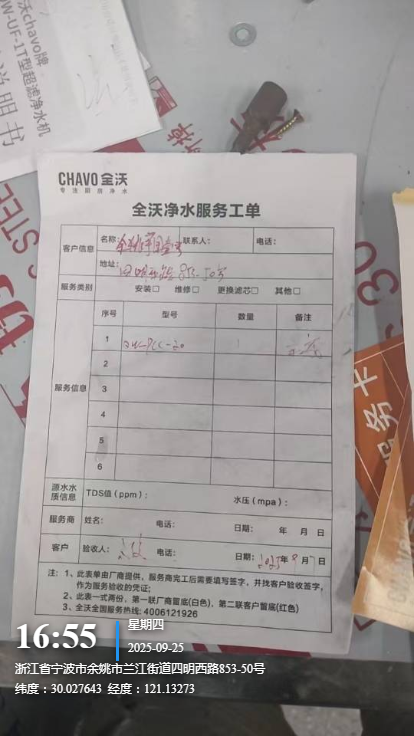 沃chavo牌
W-UF-1T型超滤净水机
说明书
CHAVO 全沃
专注厨房净水
全沃净水服务工单
客户信息
名称:
联系人:
电话:
地址: 853-50号
服务类别 安装□ 维修□ 更换滤芯□ 其他□
服务信息
序号 型号 数量 备注
1
2
3
4
5
6
源水水质信息 TDS值(ppm): 水压(mpa):
服务商 姓名: 电话: 日期: 年 月 日
客户 验收人: 电话: 日期: 2025年9月 日
注: 1、此表单由厂商提供、服务商完工后需要填写签字,并找客户验收签字,
作为服务验收的凭证;
2、此表一式两份、第一联厂商留底(白色), 第二联客户留底(红色)
3、全沃全国服务热线: 4006121926
务卡
16:55
星期四
2025-09-25
浙江省宁波市余姚市兰江街道四明西路853-50号
纬度:30.027643 经度:121.13273